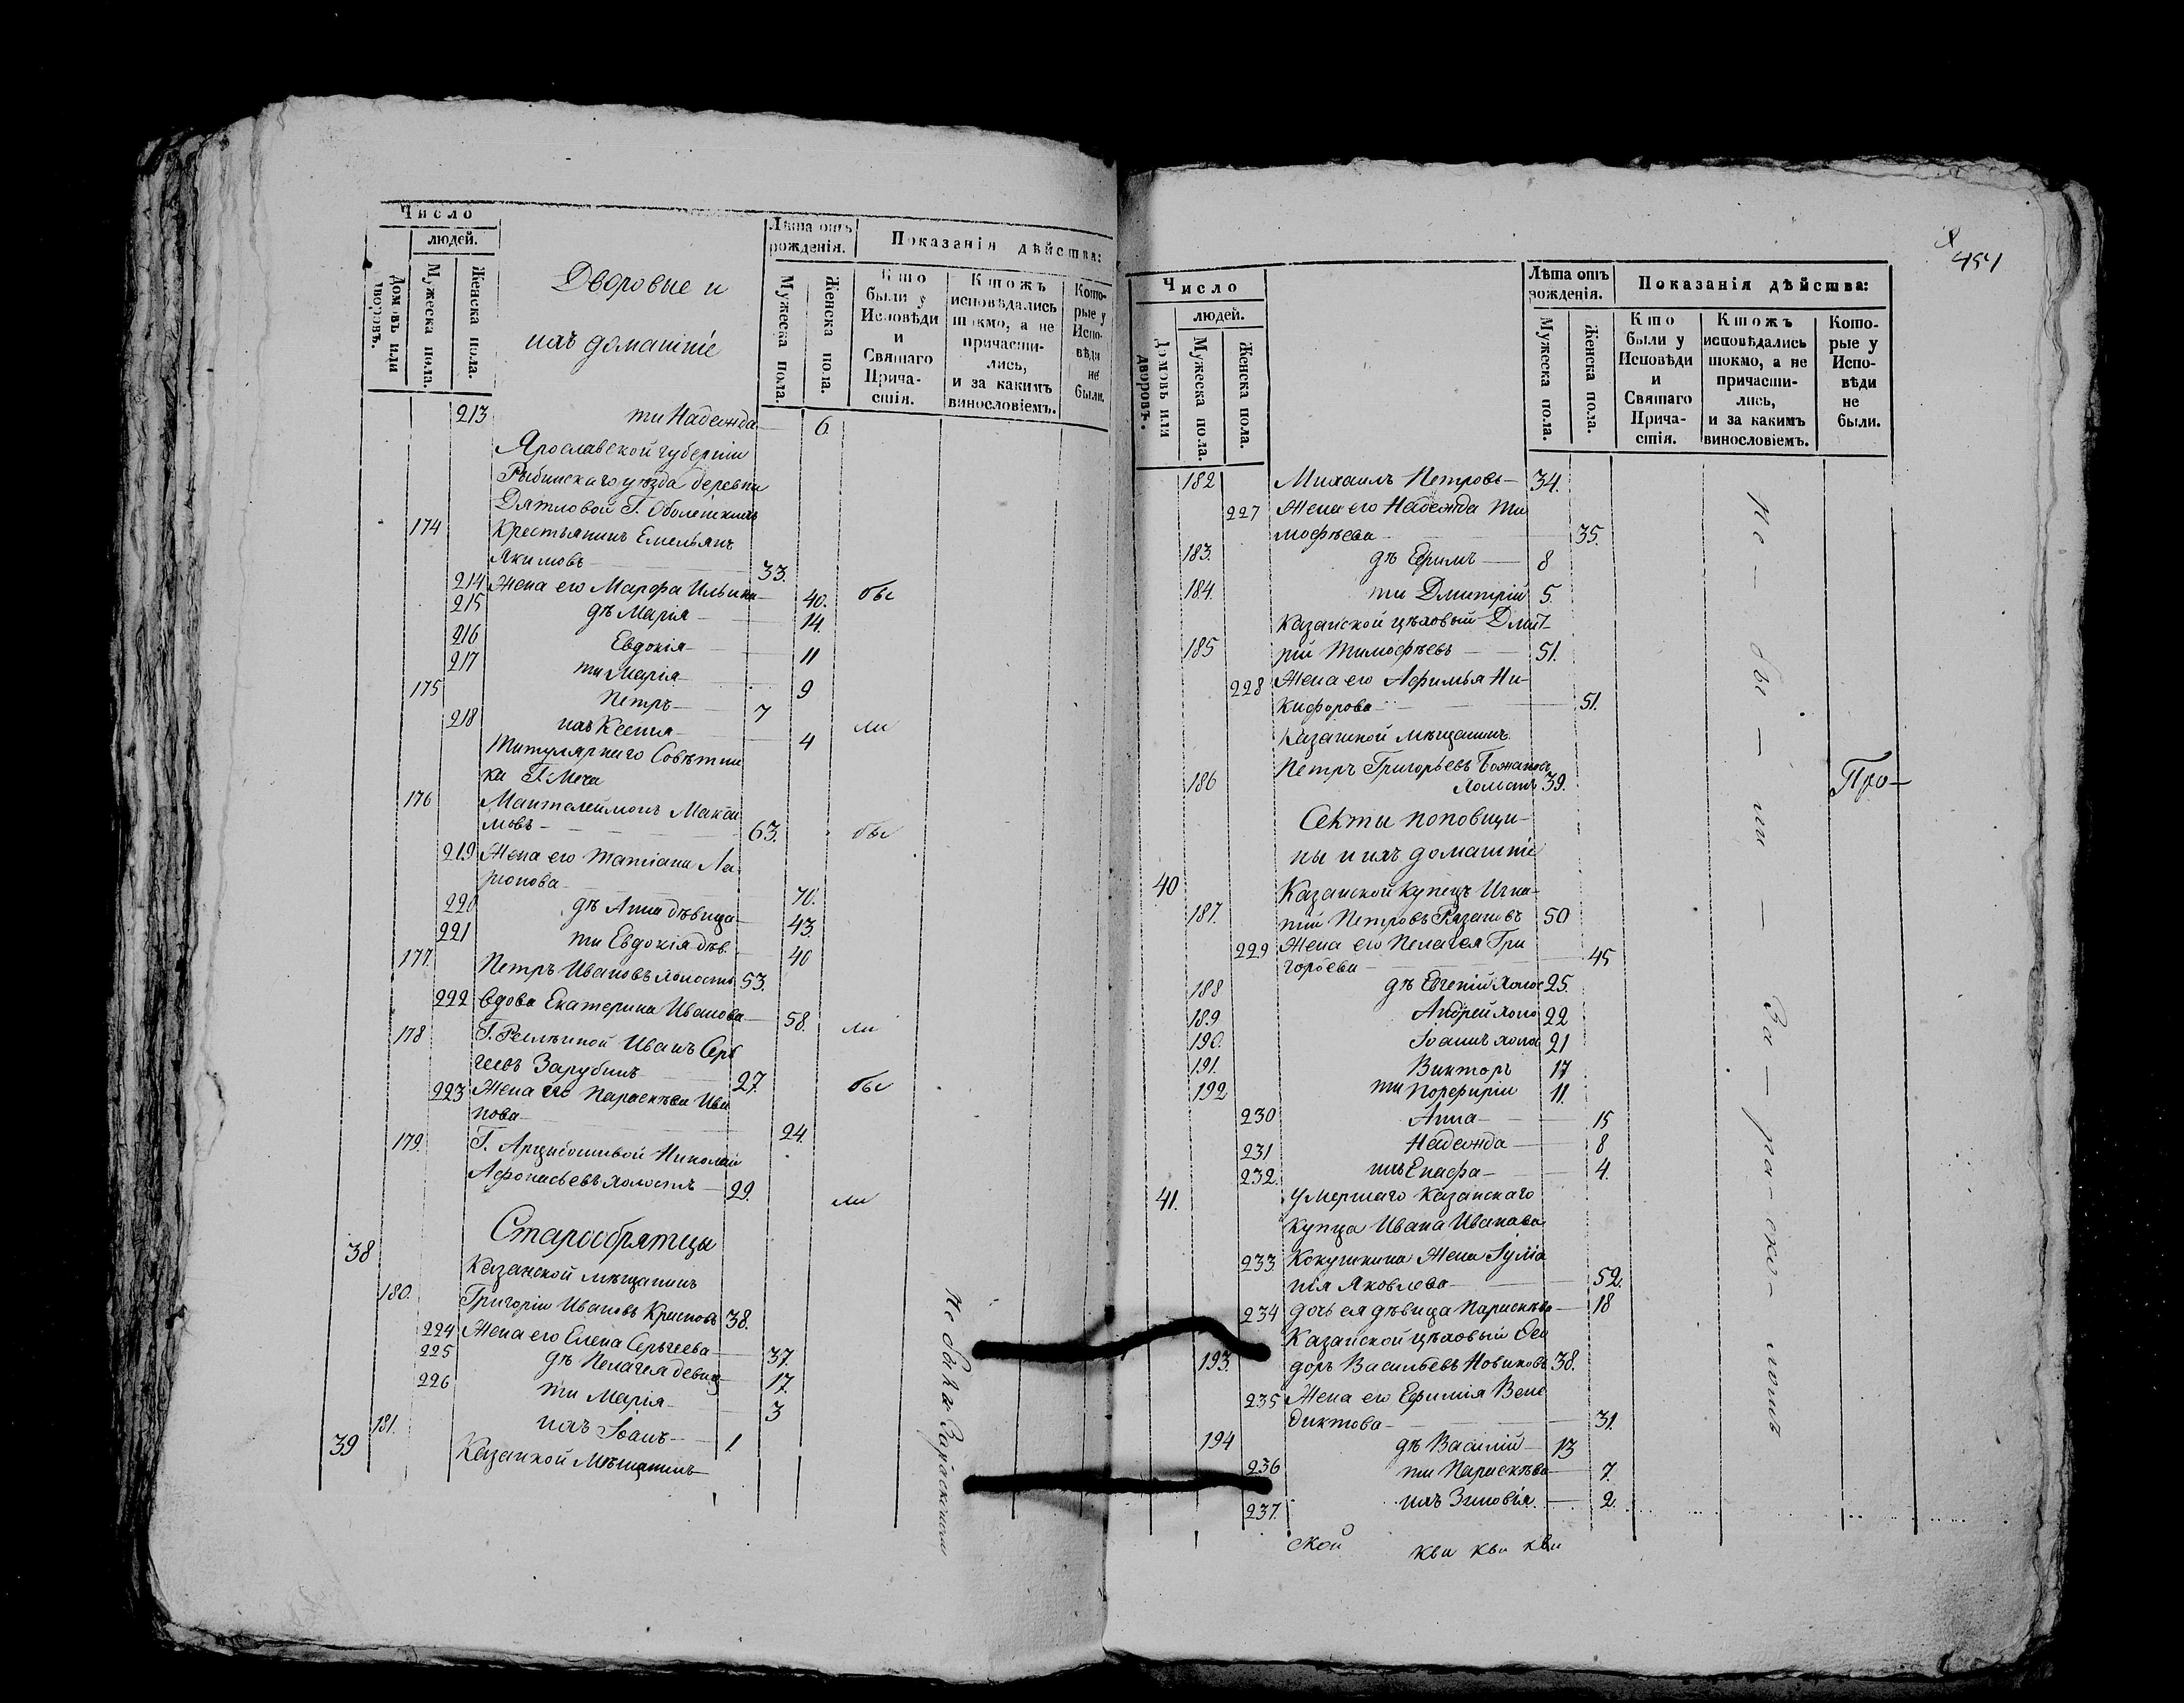 Число
людей.
Домовъ или дворовъ.
Мужеска пола.
Женска пола.
Дворовые и
ихъ домашніе
Лѣта отъ рожденія.
Мужеска пола.
Женска пола.
Показанія дѣйства:
Кто были у Исповѣди и Святаго Прича-стія.
Ктожъ исповѣдались токмо, а не причасти-лись, и за какимъ винословіемъ.
Кото-рые у Испо-вѣди не были.
213 ти Надежда 6
Ярославской губерніи
Рыбинскаго уѣзда деревни
Дятловой Г.
174 Крестьянинъ Емельянъ
Якимовъ 33.
214 Жена его Марфа Ильина 40. бы
215 дѣ Марія 14.
216 Евдокія 11
217 ти Марія 9
175 Петръ 7
218 ихъ Ксенія 4 ли
Титулярнаго Совѣтни
ка Г.
176 Мантолеймонъ Макси
мовъ 63. бы
219 Жена его Татіана Ла-
ріонова 70.
220 дѣ Анна дѣвица 43.
221 ти Евдокія дѣв. 40
177. Петръ Ивановъ холостъ 53.
222 вдова Екатерина Иванова 58. ли
178 Г. Иванъ Сер
геевъ Зарубинъ 27.
223 Жена его Параскѣва Ива бы
нова 24.
179. Г. Арцыбошивой Николай
Афонасьевъ холостъ 29. ли
Старообрятцы
38 Казанской мѣщанинъ
180. Григоріи Ивановъ Красновъ 38.
224 Жена его Елена Сергѣева 37.
225 дѣ Пелагея девиц 17.
226 ти Марія 3
181. ихъ Іоанъ 1
39 Казанкой Мѣщанинъ
Не бы
454
Число
людей.
Домовъ или дворовъ.
Мужеска пола.
Женска пола.
Лѣта отъ рожденія.
Мужеска пола.
Женска пола.
Показанія дѣйства:
Кто были у Исповѣди и Святаго Прича-стія.
Ктожъ исповѣдались токмо, а не причасти-лись, и за какимъ винословіемъ.
Кото-рые у Испо-вѣди не были.
182 Михаилъ Петровъ 34.
227 Жена его Надежда Ти
мофѣева 35.
183. дѣ Ефимъ 8
184. ти Дмитрій 5.
Казанской цѣховый Дмит-
185 рій Тимофѣевъ 51.
228 Жена его Афимья Ни-
кифорова 51.
Казанской мѣщанинъ
186 Петръ Григорьевъ
холостъ 39.
Про-
Секты поповщи-
ны и ихъ домашніе
40 Казанской купецъ Игна-
187. тій Петровъ Рязановъ 50
229 Жена его Пелагея Гри
горьева 45
188 дѣ Евгеній холос 25.
189 Андрей холо 22
190. Іоаннъ холос 21
191. Викторъ 17
192 ти Порфирій 11.
230 Анна 15
231 Надежда 8
232. ихъ Епафа 4.
41. Умершаго Казанскаго
купца Ивана Иванова
233 Кокушкина Жена Іуліа
нія Яковлева 52.
234 дочь ея дѣвица Параскѣва 18
Казанской цѣховый Ѳео
193 доръ Васильевъ Новиковъ 38.
235 Жена его Ефимія Вене
диктова 31.
194 дѣ Василій 13
236 ти Параскѣва 7.
237. ихъ Зиновія 2.
Не - бы - ли - За - рас - ко - ломъ
ской кви кви кви